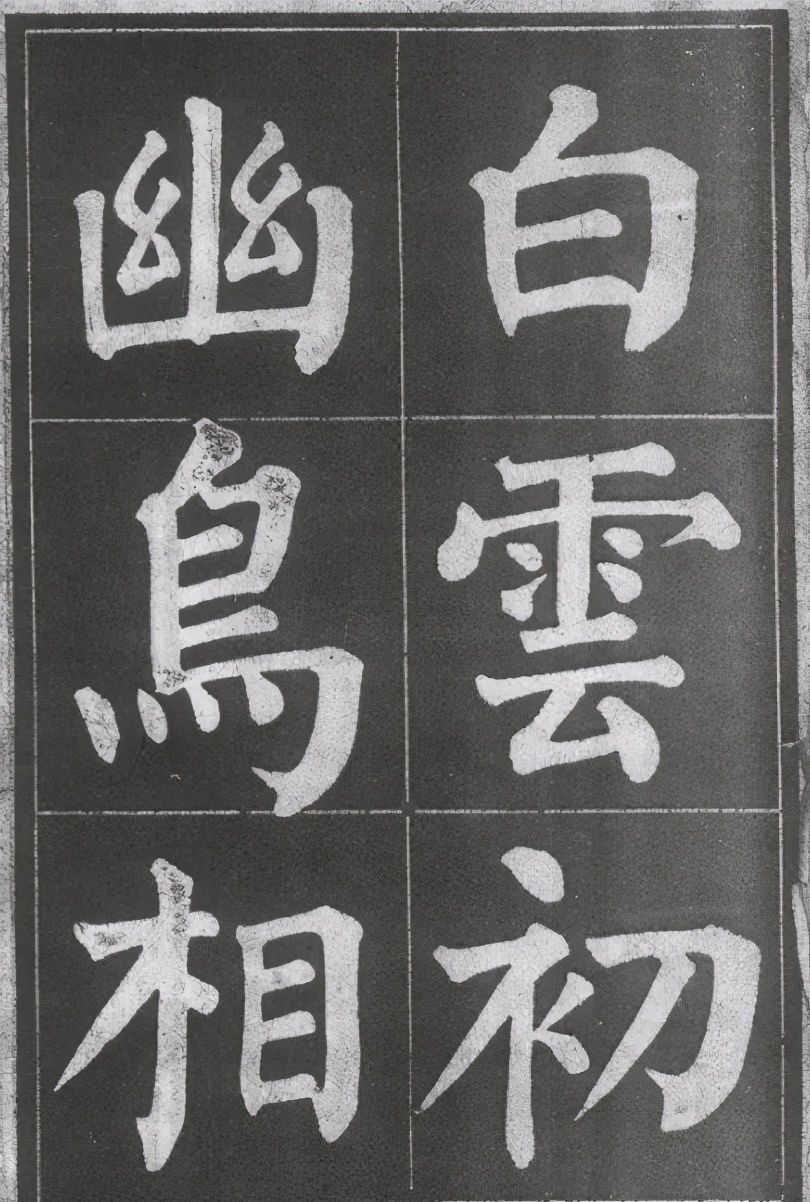 白雲初
幽鳥相